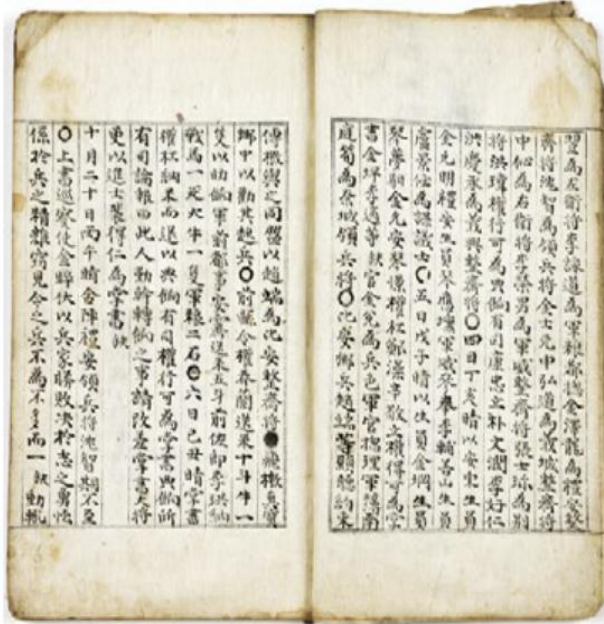 為左衛將李詠道為軍粮都摠金澤龍為禮安整
齊將琴智為領兵將金士元申弘道為義城整齊將
申心為右衛將李榮男為軍威整齊將張士珎為別
將洪瑋權行可為典餉有司盧忠立朴文潤李好仁
洪慶承為義興整齊將○四日丁亥晴以安東生員
金允明禮安生員琴應壎軍威李輔善山生員
盧景任為謀議士○五日戊子晴以生員金堈生員
琴夢馹金允安琴權杠鄭澡辛敬立權得可為掌
書金坪李適等官金兌為兵色軍官摠理軍器南
庭筍為領兵將○化安鄕兵趙端等願聽約束
傳檄與之同盟以趙端為化安整齊將飛檄
鄕中以勸其起兵○前縣令權春蘭送米十斗牛一
隻以助餉軍前都事安霽送米五斗前佐郞李珙納
戰馬一疋大牛一隻軍粮三石○六日己丑晴掌書
權杠納米而退以典餉有司權行可為掌書典餉所
有司論報曰此人勤幹轉餉之事請改差掌書大將
更以進士裵得仁為掌書
十月二十日丙午晴合陣禮安領兵將琴智期不至
○上書巡察使金睟伏以兵家勝敗決於志之勇怯
係於兵之精雜竊見今之兵不為不多而一動輒